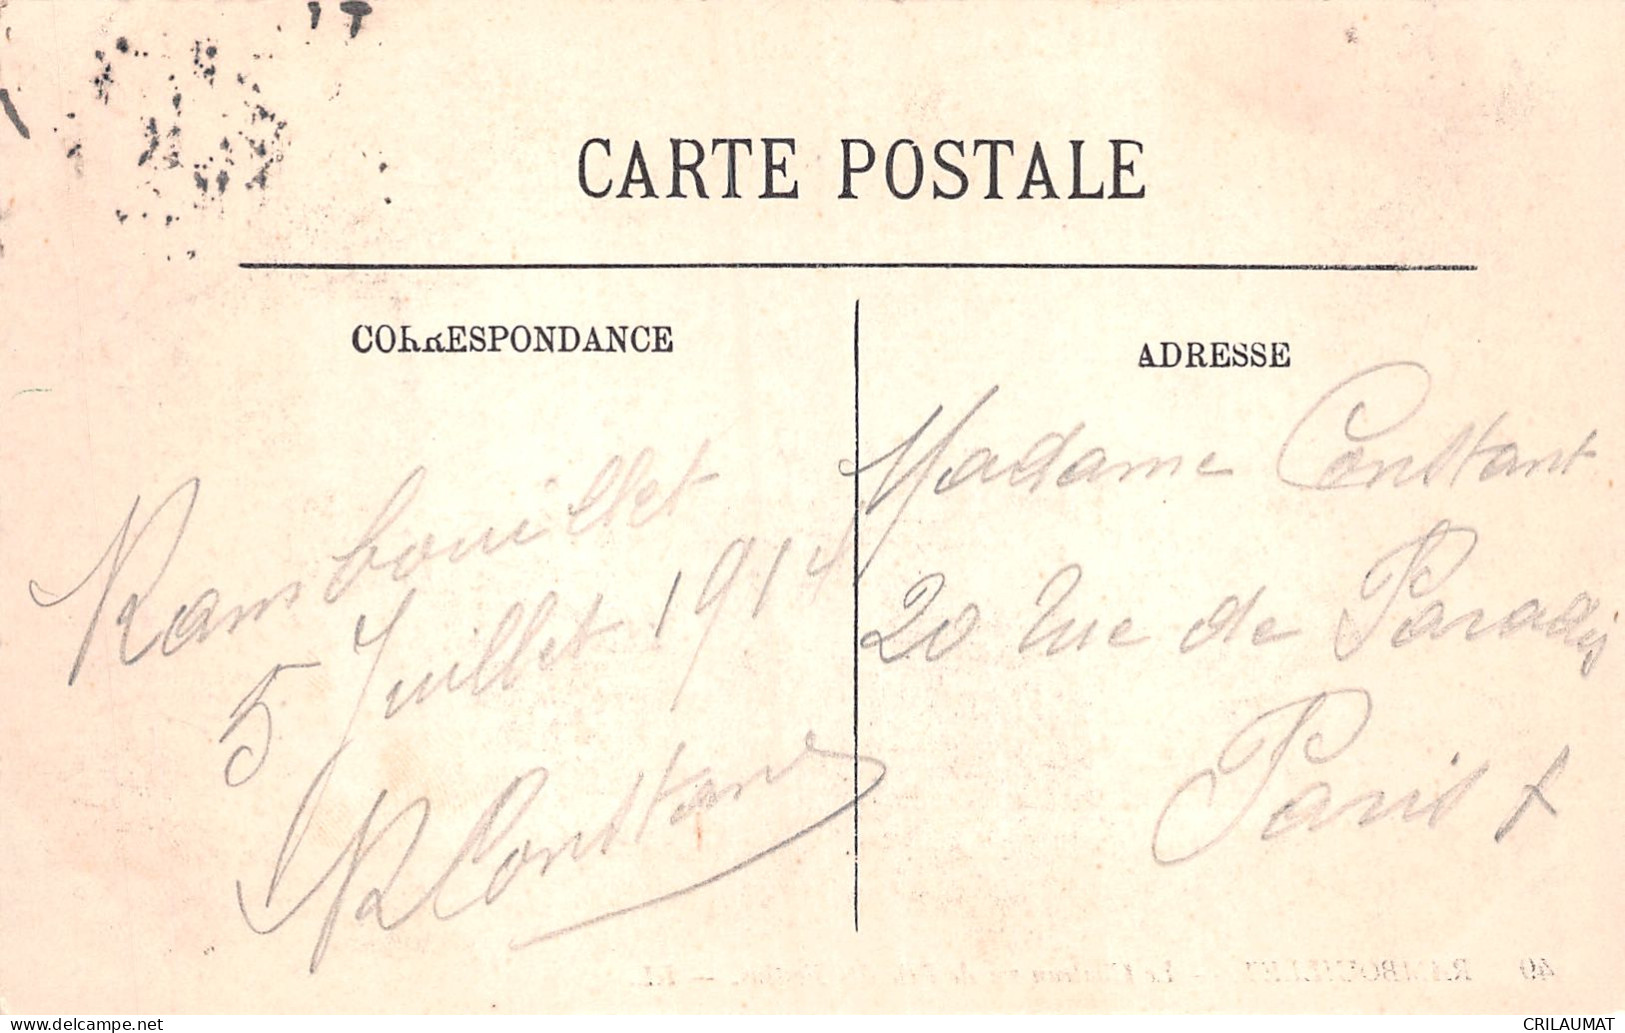 CARTE POSTALE
CORRESPONDANCE
ADRESSE
Rambouillet
5 Juillet 1914
R Constant
Madame Constant
20 Rue de Paradis
Paris X
40 RAMBOUILLET. — Le Château vu de
CRILAUMAT